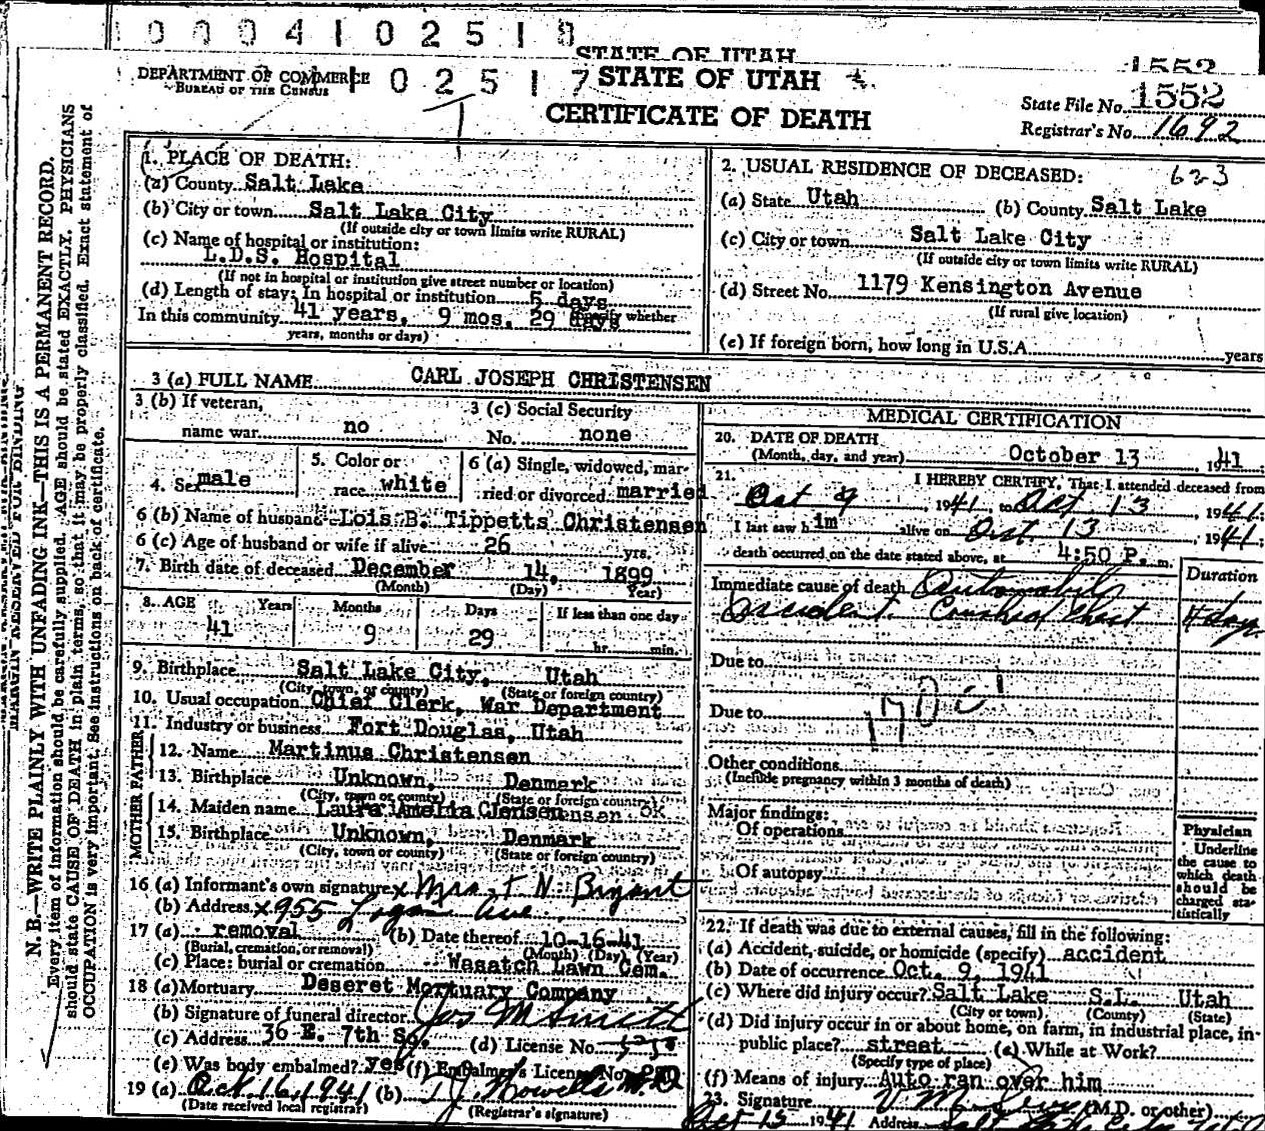 0 0 0 4 1 0 2 5 1 8
STATE OF UTAH
1552
DEPARTMENT OF COMMERCE
BUREAU OF THE CENSUS
1 0 2 5 1 7
STATE OF UTAH
CERTIFICATE OF DEATH
State File No. 1552
Registrar's No. 1692
N. B.—WRITE PLAINLY WITH UNFADING INK—THIS IS A PERMANENT RECORD.
Every item of information should be carefully supplied. AGE should be stated EXACTLY. PHYSICIANS
should state CAUSE OF DEATH in plain terms, so that it may be properly classified. Exact statement of
OCCUPATION is very important. See instructions on back of certificate.
MARGIN RESERVED FOR BINDING
1. PLACE OF DEATH:
(a) County Salt Lake
(b) City or town Salt Lake City
(If outside city or town limits write RURAL)
(c) Name of hospital or institution:
L.D.S. Hospital
(If not in hospital or institution give street number or location)
(d) Length of stay: In hospital or institution 5 days
In this community 41 years, 9 mos. 29 days whether
years, months or days)
2. USUAL RESIDENCE OF DECEASED: 623
(a) State Utah (b) County Salt Lake
(c) City or town Salt Lake City
(If outside city or town limits write RURAL)
(d) Street No. 1179 Kensington Avenue
(If rural give location)
(e) If foreign born, how long in U.S.A. years
3 (a) FULL NAME CARL JOSEPH CHRISTENSEN
3 (b) If veteran, name war no
3 (c) Social Security No. none
4. Sex male
5. Color or race white
6 (a) Single, widowed, married or divorced married
6 (b) Name of husband Lois B. Tippetts Christensen
6 (c) Age of husband or wife if alive 26 yrs.
7. Birth date of deceased December 14, 1899
(Month) (Day) Year)
8. AGE Years Months Days If less than one day
41 9 29 hr. min.
9. Birthplace Salt Lake City, Utah
(City, town, or county) (State or foreign country)
10. Usual occupation Chief Clerk, War Department
11. Industry or business Fort Douglas, Utah
FATHER
12. Name Martinus Christensen
13. Birthplace Unknown, Denmark
(City, town or county) (State or foreign country)
MOTHER
14. Maiden name Laura Amelia Clensen ensen OK
15. Birthplace Unknown, Denmark
(City, town or county) (State or foreign country)
16 (a) Informant's own signature x Mrs. T N Bryant
(b) Address x 955 Logan Ave
17 (a) removal (b) Date thereof 10-16-41
(Burial, cremation, or removal) (Month) (Day) (Year)
(c) Place: burial or cremation Wasatch Lawn Cem.
18 (a) Mortuary Deseret Mortuary Company
(b) Signature of funeral director Jos M Smith
(c) Address 36 E. 7th So. (d) License No.
(e) Was body embalmed? yes (f) Embalmer's License No.
19 (a) Oct. 16, 1941 (b) T J Howells
(Date received local registrar) (Registrar's signature)
MEDICAL CERTIFICATION
20. DATE OF DEATH
(Month, day, and year) October 13, 1941
21. I HEREBY CERTIFY, That I attended deceased from
Oct 9, 1941, to Oct 13, 1941;
I last saw him alive on Oct. 13, 1941;
death occurred on the date stated above, at 4:50 P. m.
Duration
Immediate cause of death Automobile
accident. Crushed Chest 4 days
Due to
Due to 170
Other conditions
(Include pregnancy within 3 months of death)
Major findings:
Of operations
Of autopsy
Physician
Underline
the cause to
which death
should be
charged sta-
tistically
22. If death was due to external causes, fill in the following:
(a) Accident, suicide, or homicide (specify) accident
(b) Date of occurrence Oct. 9, 1941
(c) Where did injury occur? Salt Lake S.L. Utah
(City or town) (County) (State)
(d) Did injury occur in or about home, on farm, in industrial place, in
public place? street (e) While at Work?
(Specify type of place)
(f) Means of injury Auto ran over him
23. Signature (M.D. or other)
Oct 15 1941 Address Salt Lake City